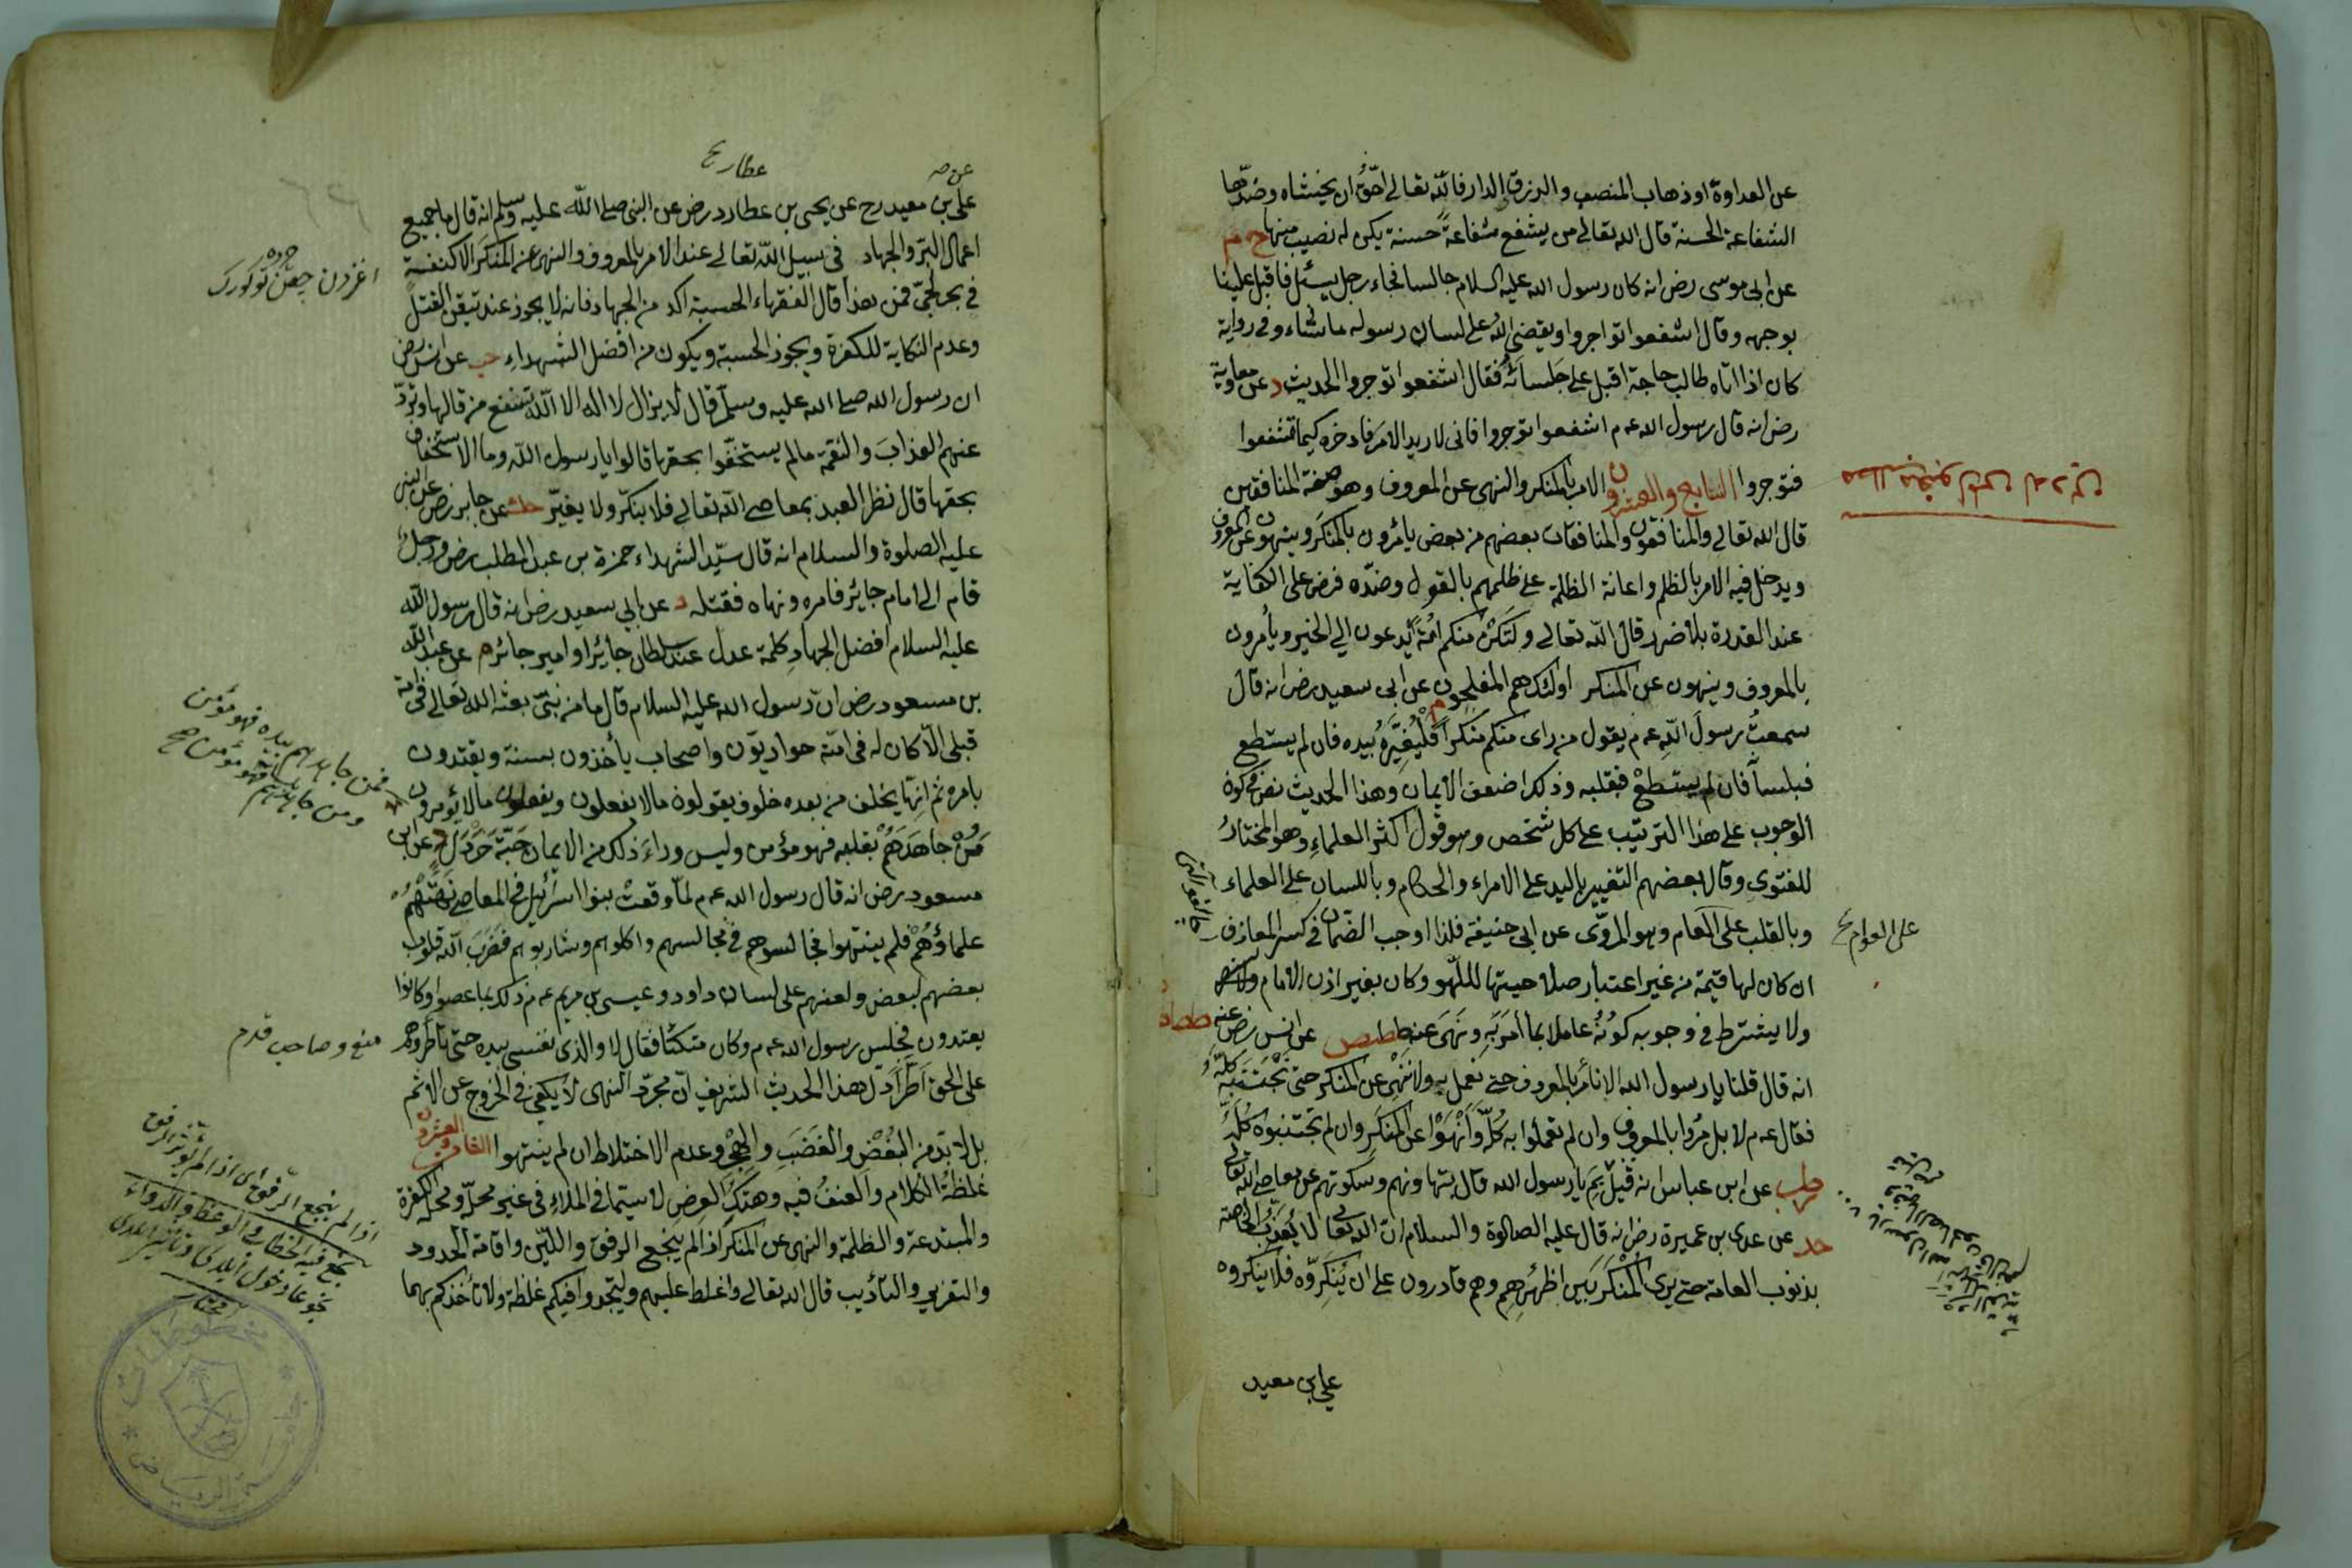 عن العداوة او ذهاب المنصب والرزق الدار فالله تعالى احق ان يخشاه وضدها
الشفاعة الحسنة قال الله تعالى من يشفع شفاعة حسنة يكن له نصيب منها خ م
عن ابى موسى رض انه كان رسول الله عليه السلام جالسا فجاء رجل يسئل فاقبل علينا
بوجهه وقال اشفعوا تواجروا ويقضى الله على لسان رسوله ما شاء وفى رواية
كان اذا اتاه طالب حاجة اقبل على جلسائه فقال اشفعوا توجروا الحديث د عن معاوية
رض انه قال رسول الله عم اشفعوا توجروا فانى لاريد الامر فادخره كيما تشفعوا
فتوجروا السابع والعشرون الامر بالمنكر والنهى عن المعروف وهو صفة المنافقين
قال الله تعالى والمنافقون والمنافقات بعضهم من بعض يامرون بالمنكر وينهون عن المعروف
ويدخل فيه الامر بالظلم واعانة الظلمة على ظلمهم بالقول وضده فرض على الكفاية
عند القدرة بلا ضرر قال الله تعالى ولتكن منكم امة يدعون الى الخير ويأمرون
بالمعروف وينهون عن المنكر اولئك هم المفلحون م عن ابى سعيد رض انه قال
سمعت رسول الله عم يقول من راى منكم منكرا فليغيره بيده فان لم يستطع
فبلسانه فان لم يستطع فبقلبه وذلك اضعف الايمان وهذا الحديث نص فى كون
الوجوب على هذا الترتيب على كل شخص وهو قول اكثر العلماء وهو المختار
للفتوى وقال بعضهم التغيير باليد على الامراء والحكام وباللسان على العلماء
وبالقلب على العام وهو المروى عن ابى حنيفة فلذا اوجب الضمان فى كسر المعازف
على العوام
ان كان لها قيمة من غير اعتبار صلاحيتها لللهو وكان بغير اذن الامام
ولا يشترط فى وجوبه كونه عاملا بما امر به ونهى عنه ططص عن انس رض عنه
انه قال قلنا يا رسول الله الا نأمر بالمعروف حتى نعمل به ولا ننهى عن المنكر حتى نجتنبه كله
فقال عم لا بل مروا بالمعروف وان لم تعملوا به كله وانهوا عن المنكر وان لم تجتنبوه كله
طب عن ابن عباس انه قيل بم يا رسول الله قال بتهاونهم وسكوتهم عن معاصى الله تعالى
حد عن عدى بن عميرة رض انه قال عليه الصلوة والسلام ان الله تعالى لا يعذب الخاصة
بذنوب العامة حتى يرى المنكر بين اظهرهم وهم قادرون على ان ينكروه فلا ينكروه
على بن معبد
عطار
على بن معبد رح عن يحيى بن عطارد رض عن النبى صلى الله عليه وسلم انه قال ما جميع
اعمال البر والجهاد فى سبيل الله تعالى عند الامر بالمعروف والنهى عن المنكر الا كنفثة
فى بحر لجى فمن هذا قال الفقهاء الحسبة اكد من الجهاد فانه لا يجوز عند تيقن القتل
وعدم النكاية للكفرة ويجوز الحسبة ويكون من افضل الشهداء حب عن انس رض
ان رسول الله صلى الله عليه وسلم قال لا يزال لا اله الا الله تنفع من قالها وترد
عنهم العذاب والنقمة ما لم يستخفوا بحقها قالوا يا رسول الله وما الاستخفاف
بحقها قال نظر العبد بمعاصى الله تعالى فلا ينكر ولا يغير عن جابر رض عن النبى
عليه الصلوة والسلام انه قال سيد الشهداء حمزة بن عبد المطلب رض ورجل
قام الى امام جائر فامره ونهاه فقتله د عن ابى سعيد رض انه قال رسول الله
عليه السلام افضل الجهاد كلمة عدل عند سلطان جائر او امير جائر م عن عبد الله
بن مسعود رض ان رسول الله عليه السلام قال ما من نبى بعثه الله تعالى فى امة
قبلى الا كان له فى امته حواريون واصحاب يأخذون بسنته ويقتدون
بامره ثم انها يخلف من بعده خلوف يقولون ما لا يفعلون ويفعلون ما لا يؤمرون
فمن جاهدهم بيده فهو مؤمن
ومن جاهدهم بلسانه فهو مؤمن صح
من جاهدهم بقلبه فهو مؤمن وليس وراء ذلك من الايمان حبة خردل عن ابن
مسعود رض انه قال رسول الله عم لما وقعت بنوا اسرائيل فى المعاصى نهتهم
علماؤهم فلم ينتهوا فجالسوهم فى مجالسهم واكلوهم وشاربوهم فضرب الله قلوب
بعضهم ببعض ولعنهم على لسان داود وعيسى بن مريم عم ذلك بما عصوا وكانوا
يعتدون فجلس رسول الله عم وكان متكئا فقال لا والذى نفسى بيده حتى تأطروهم
على الحق اطرا دل هذا الحديث الشريف ان مجرد النهى لا يكفى فى الخروج عن الاثم
بل لابد من البغض والغضب والهجر وعدم الاختلاط ان لم ينتهوا الثامن والعشرون
غلظة الكلام والعنف فيه وهتك العرض لا سيما فى الملاء فى غير محله ومحله الكفرة
والمبتدعة والظلمة والنهى عن المنكر اذا لم ينجع الرفق واللين واقامة الحدود
والتعزير والتأديب قال الله تعالى واغلظ عليهم وليجدوا فيكم غلظة ولا تأخذكم بهما